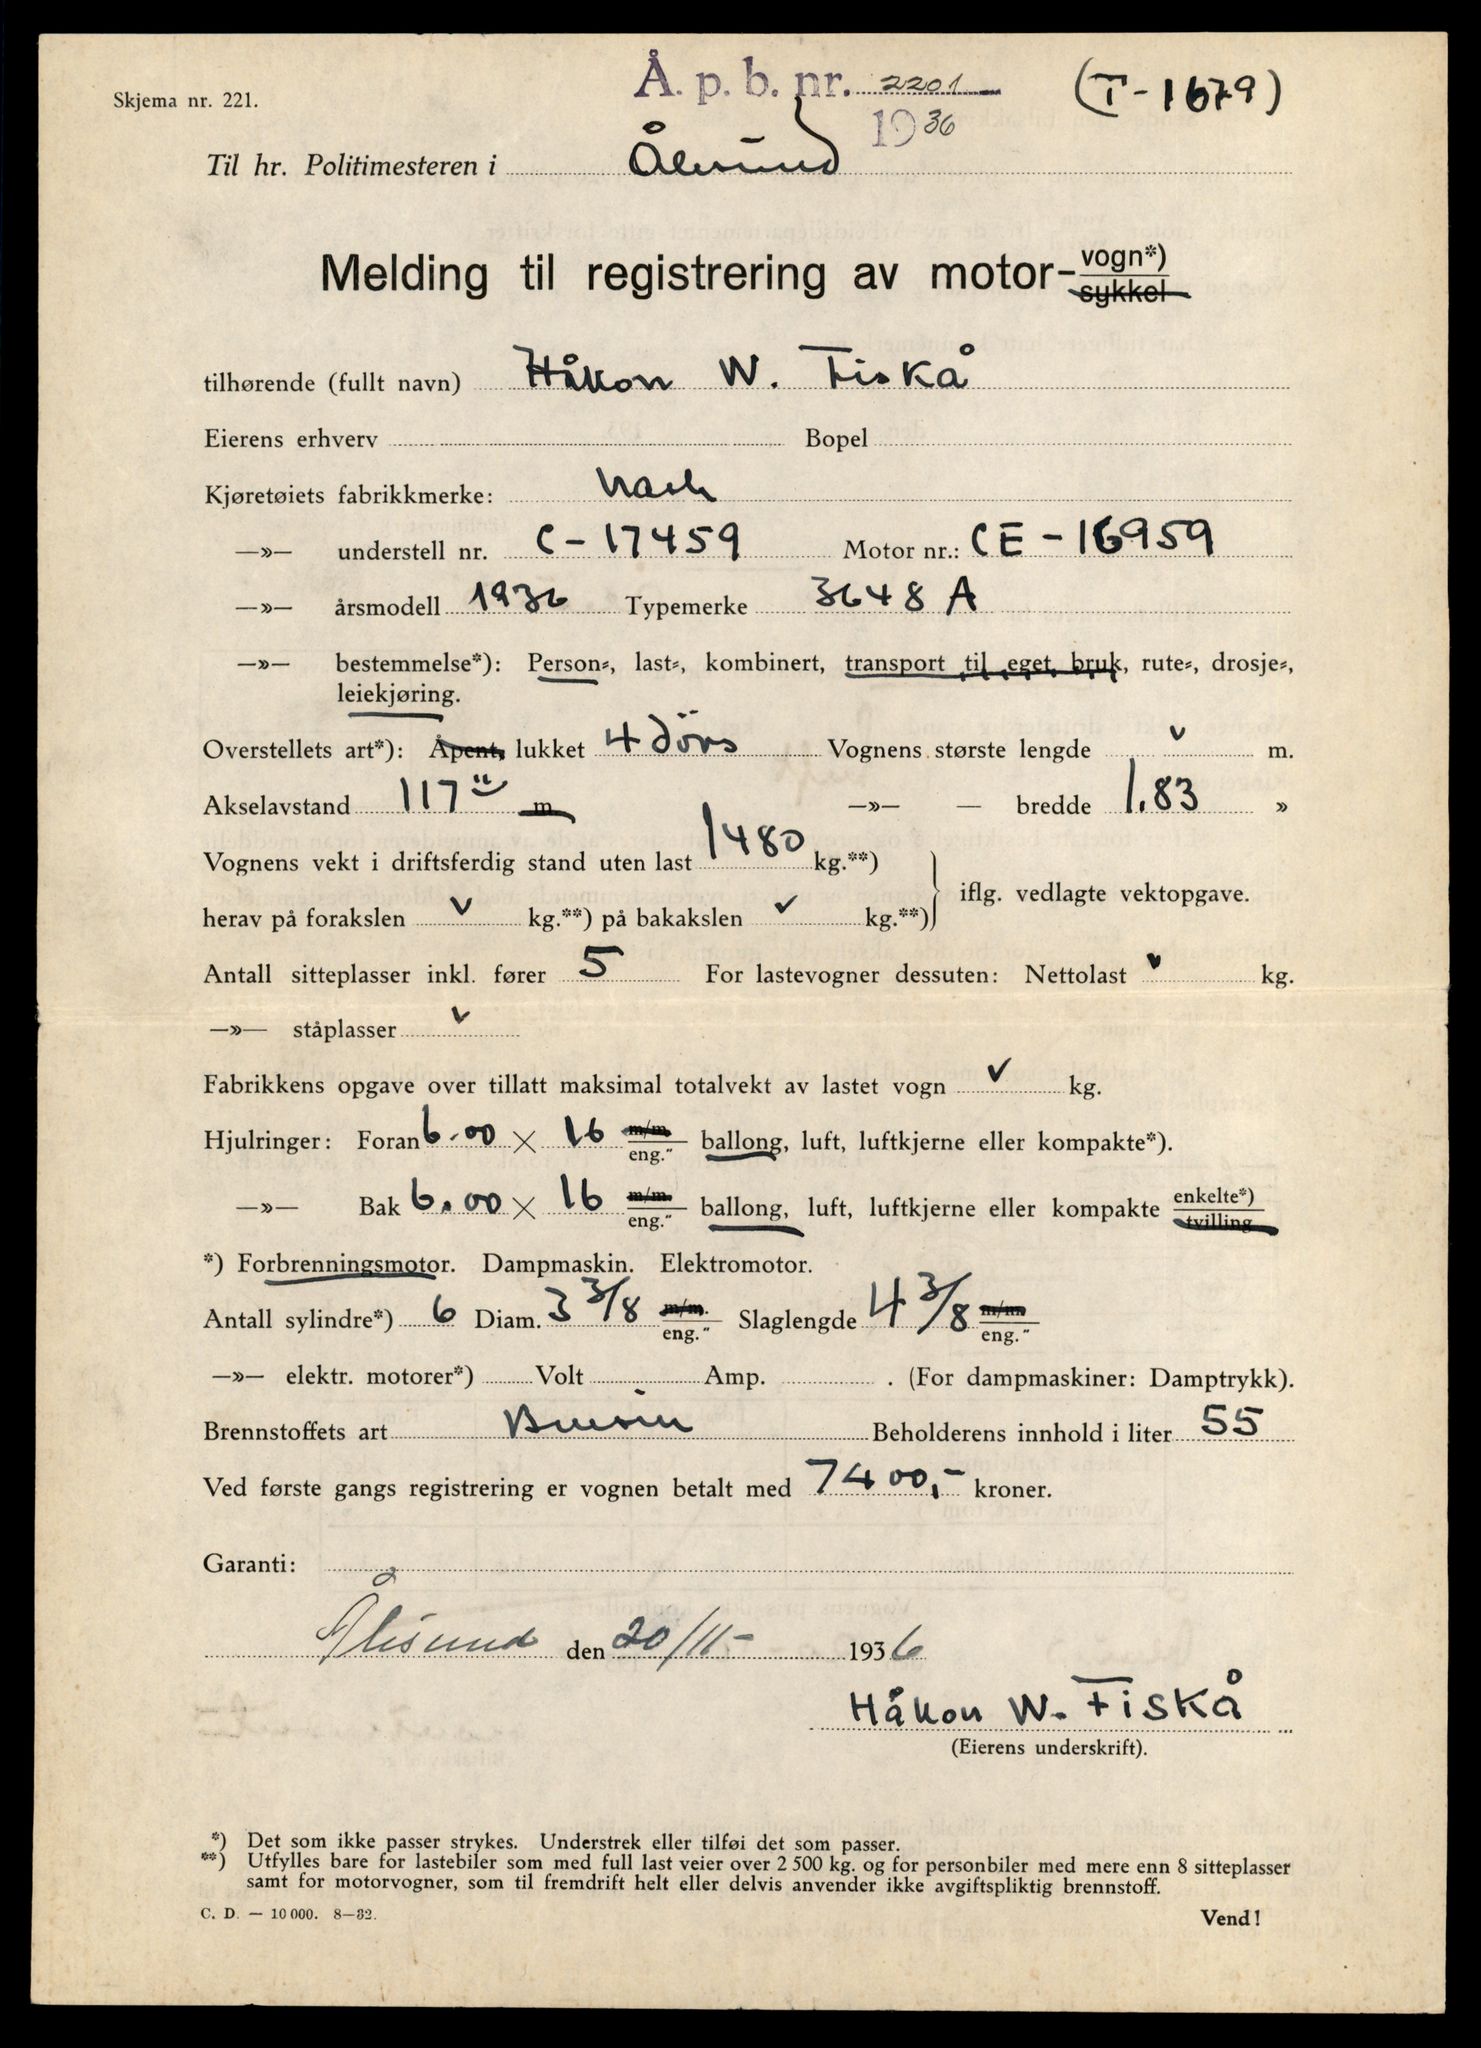 Å. p. b. nr. 2201
1936
(T-1679)
Skjema nr. 221.
Til hr. Politimesteren i Ålesund
Melding til registrering av motor-vogn*)
sykkel
tilhørende (fullt navn) Håkon W. Fiskå
Eierens erhverv Bopel
Kjøretøiets fabrikkmerke: Nash
—»— understell nr. C-17459 Motor nr.: CE-16959
—»— årsmodell 1936 Typemerke 3648 A
—»— bestemmelse*): Person-, last-, kombinert, transport til eget bruk, rute-, drosje-,
leiekjøring.
Overstellets art*): Åpent, lukket 4 dörs Vognens største lengde v m.
Akselavstand 117" m —»— — bredde 1.83 »
Vognens vekt i driftsferdig stand uten last 1480 kg.**)
herav på forakslen v kg.**) på bakakslen v kg.**) iflg. vedlagte vektopgave.
Antall sitteplasser inkl. fører 5 For lastevogner dessuten: Nettolast v kg.
—»— ståplasser v
Fabrikkens opgave over tillatt maksimal totalvekt av lastet vogn v kg.
Hjulringer: Foran 6.00 × 16 m/m. eng." ballong, luft, luftkjerne eller kompakte*).
—»— Bak 6.00 × 16 m/m. eng." ballong, luft, luftkjerne eller kompakte enkelte*) tvilling
*) Forbrenningsmotor. Dampmaskin. Elektromotor.
Antall sylindre*) 6 Diam. 3 3/8 m/m. eng." Slaglengde 4 3/8 m/m eng."
—»— elektr. motorer*) Volt Amp. . (For dampmaskiner: Damptrykk).
Brennstoffets art Bensin Beholderens innhold i liter 55
Ved første gangs registrering er vognen betalt med 7400,- kroner.
Garanti:
Ålesund den 20/11- 1936
Håkon W. Fiskå
(Eierens underskrift).
*) Det som ikke passer strykes. Understrek eller tilføi det som passer.
**) Utfylles bare for lastebiler som med full last veier over 2 500 kg. og for personbiler med mere enn 8 sitteplasser
samt for motorvogner, som til fremdrift helt eller delvis anvender ikke avgiftspliktig brennstoff.
C. D. — 10 000. 8—32.
Vend!